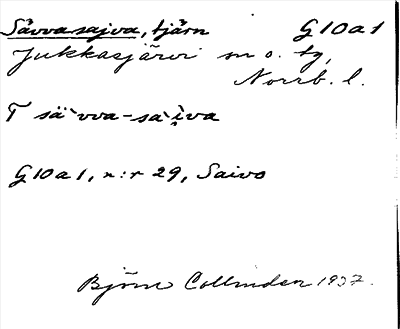 Sävvasajva, tjärn G10a1
Jukkasjärvi sn o. tg,
Norrb. l.
T sä`vva-sa`i̯va
G10a1, n:r 29, Saivo
Björn Collinder 1937.